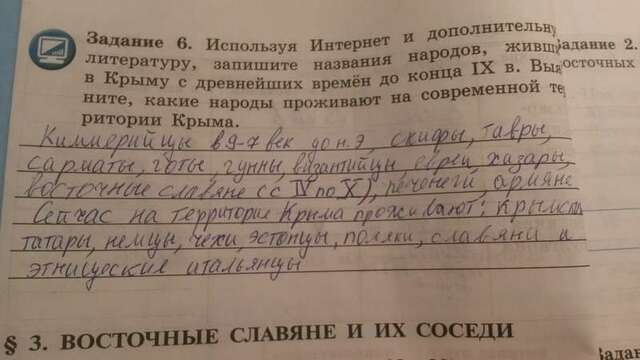 Задание 6. Используя Интернет и дополнительну
литературу, запишите названия народов, живш
в Крыму с древнейших времён до конца IX в. Выя
ните, какие народы проживают на современной те
ритории Крыма.
Киммерийцы в 9-7 век до н.э, скифы, тавры,
сарматы, готы, гунны, византийцы, евреи, хазары,
восточные славяне (с IV по X), печенеги, армяне
Сейчас на территорие Крыма проживают: крымск
татары, немцы, чехи, эстонцы, поляки, славяни и
этнические итальянцы
§ 3. ВОСТОЧНЫЕ СЛАВЯНЕ И ИХ СОСЕДИ
Задание 2.
восточных
Задан